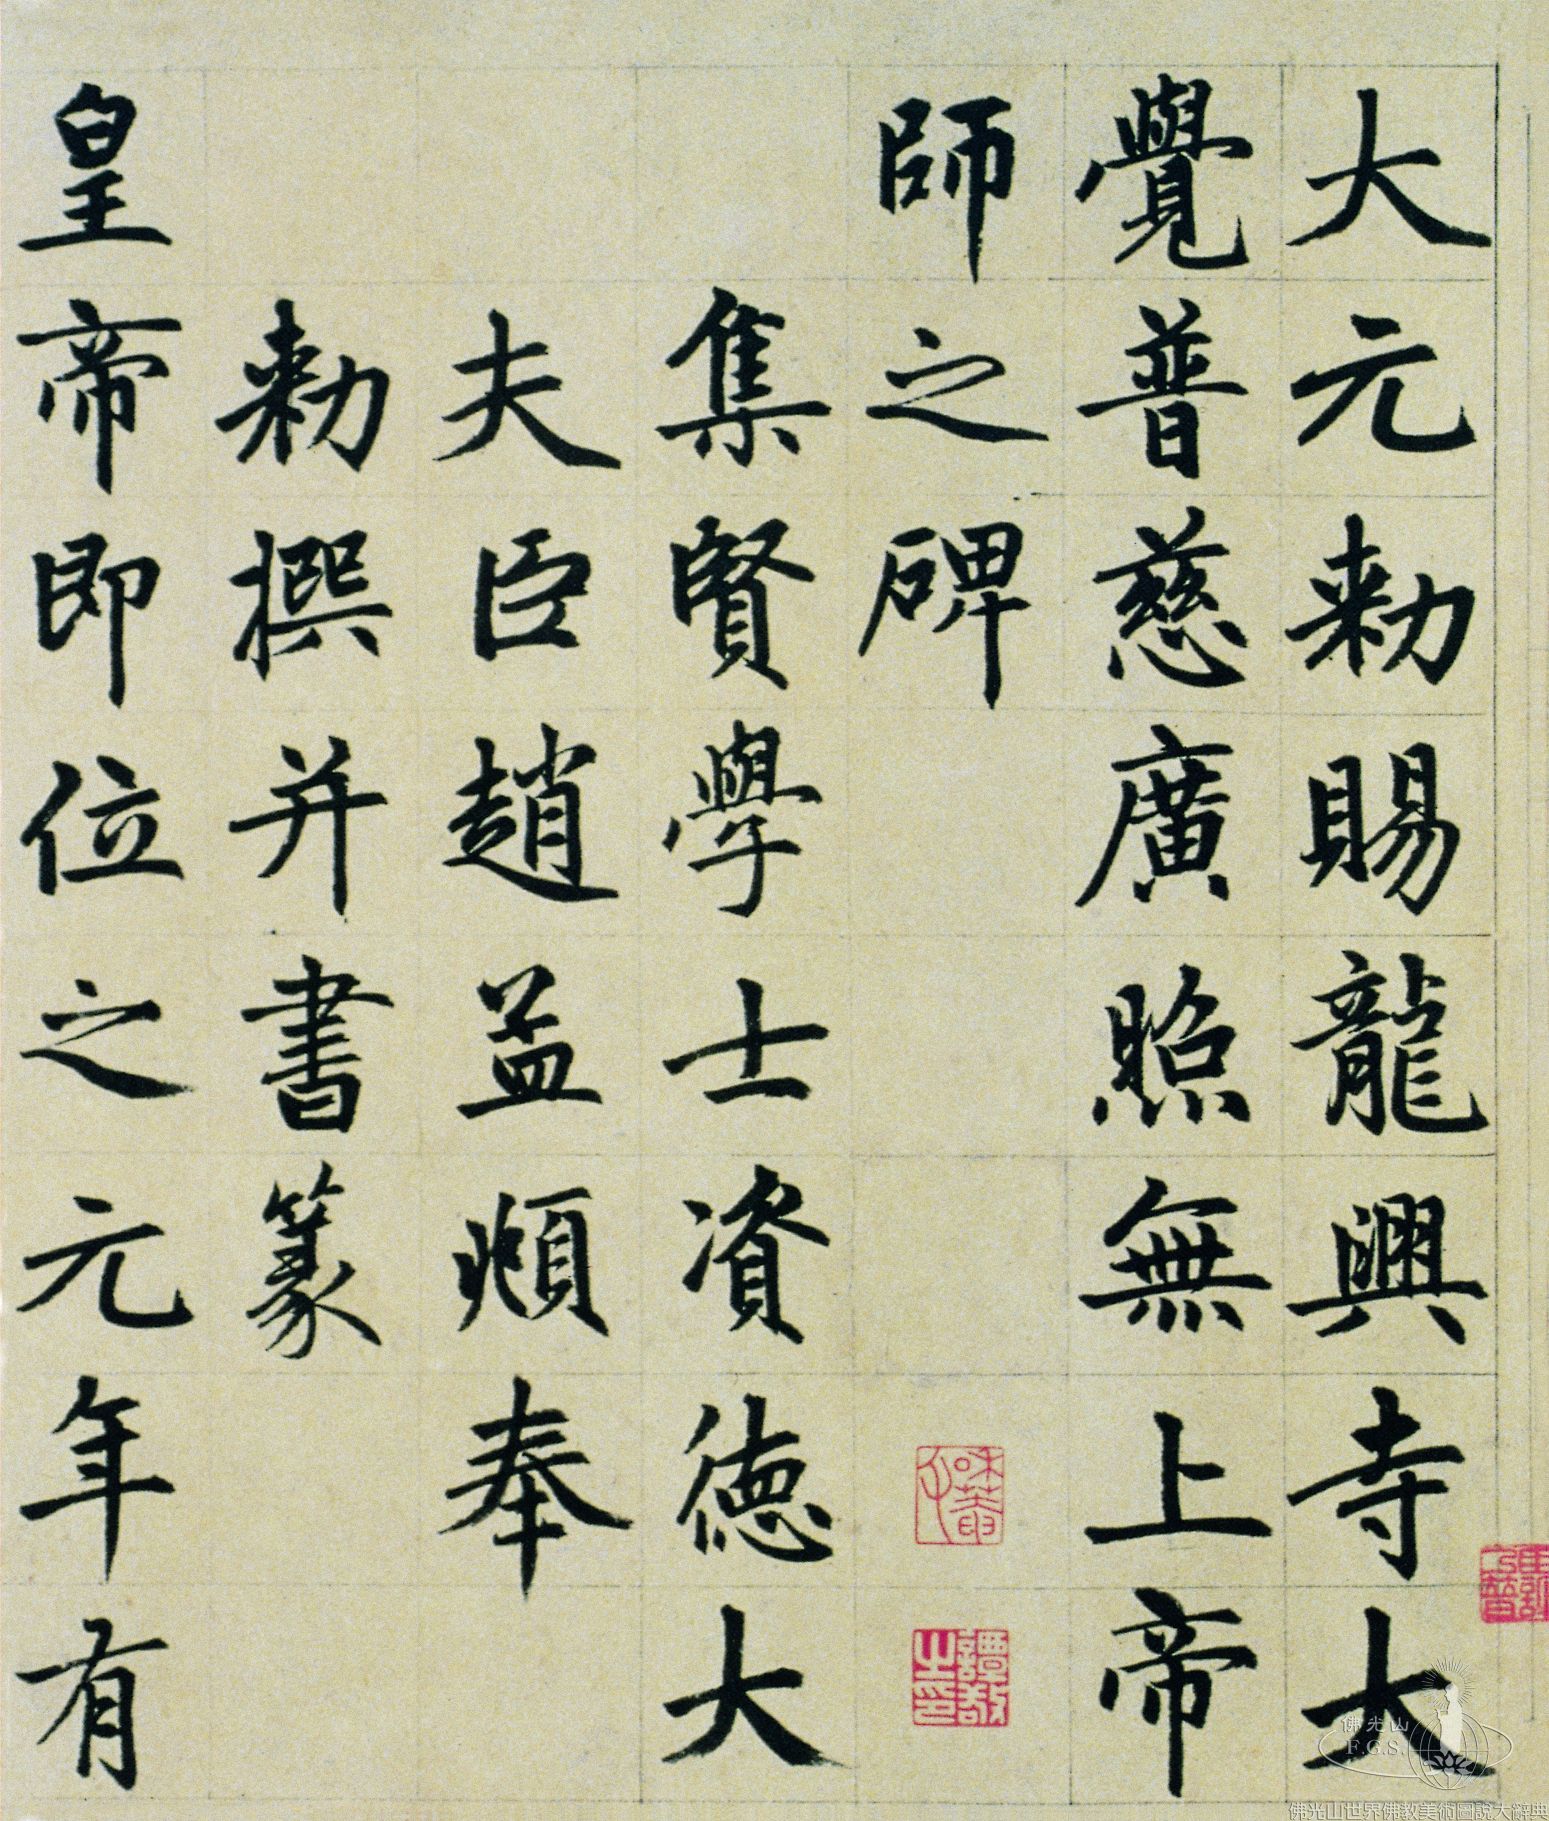 大元勑賜龍興寺大
覺普慈廣照無上帝
師之碑
集賢學士資德大
夫臣趙孟頫奉
勑撰并書篆
皇帝即位之元年有
佛光山
F.G.S.
佛光山世界佛教美術圖說大辭典